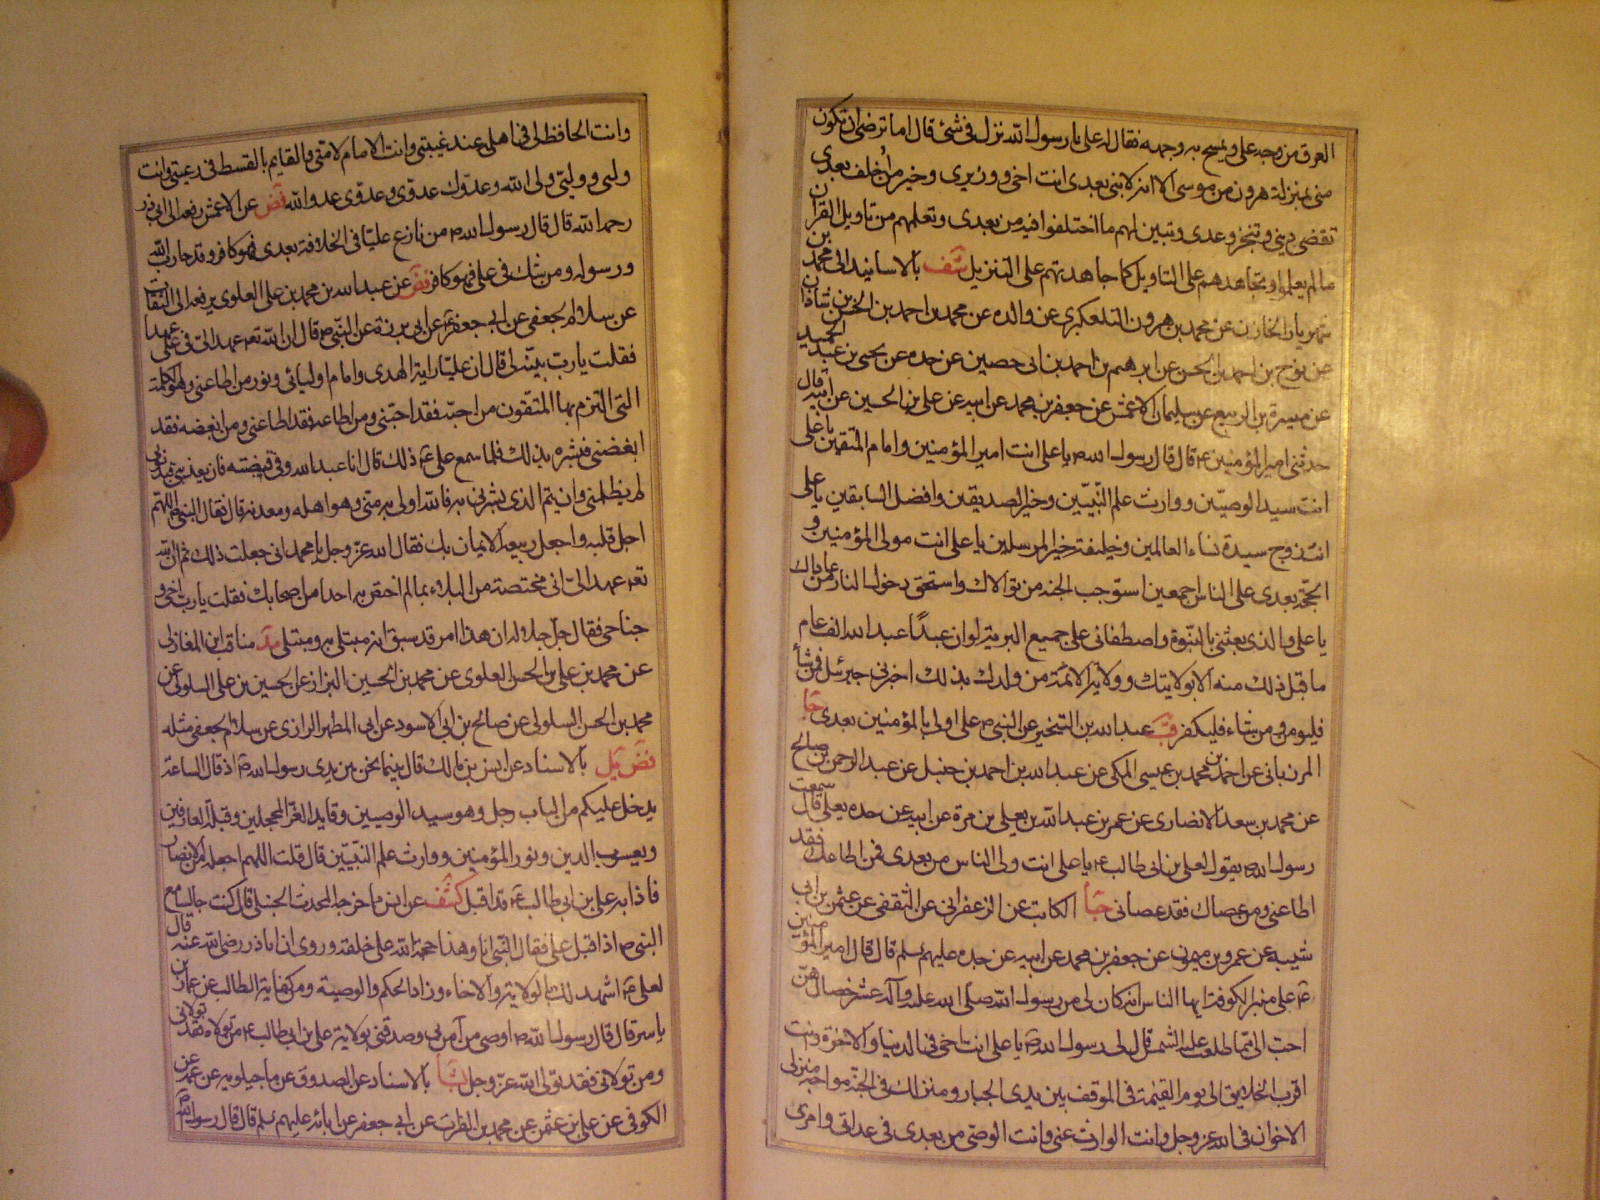 العرق من وجه علي ويمسح به وجهه فقال له علي يا رسول الله نزل في شئ قال اما ترضى ان تكون
منى بمنزلة هرون من موسى الا انه لا نبى بعدى انت اخى ووزيرى وخير من اخلف بعدى
تقضى دينى وتنجز وعدى وتبين لهم ما اختلفوا فيه من بعدى وتعلمهم من تاويل القران
ما لم يعلموا وتجاهدهم على التاويل كما جاهدتهم على التنزيل شف بالاسانيد الى محمد بن
شهريار الخازن عن محمد بن هرون التلعكبرى عن والده عن محمد بن احمد بن الحسن بن شاذان
عن نوح بن احمد بن الحسن عن ابرهيم بن احمد بن ابى حصين عن جده عن يحيى بن عبد الحميد
عن ميسرة بن الربيع عن سليمان الاعمش عن جعفر بن محمد عن ابيه عن على بن الحسين عن ابيه قال
حدثنى امير المؤمنين ع قال قال رسول الله ص يا على انت امير المؤمنين وامام المتقين يا على
انت سيد الوصيين ووارث علم النبيين وخير الصديقين وافضل السابقين يا على
انت زوج سيدة نساء العالمين وخليفة خير المرسلين يا على انت مولى المؤمنين و
الحجة بعدى على الناس اجمعين استوجب الجنة من تولاك واستحق دخول النار من عاداك
يا على والذى بعثنى بالنبوة واصطفانى على جميع البرية لو ان عبدا عبد الله الف عام
ما قبل ذلك منه الا بولايتك وولاية الائمة من ولدك بذلك اخبرنى جبرئيل فمن شاء
فليومن ومن شاء فليكفر قب عبد الله بن الشخير عن النبى ص على اولى بالمؤمنين بعدى جا
المرزبانى عن احمد بن محمد بن عيسى المكى عن عبد الله بن احمد بن حنبل عن عبد الرحمن بن صالح
عن محمد بن سعد الانصارى عن عمر بن عبد الله بن يعلى بن مرة عن ابيه عن جده يعلى قال سمعت
رسول الله ص يقول لعلى بن ابى طالب ع يا على انت ولى الناس من بعدى فمن اطاعك فقد
اطاعنى ومن عصاك فقد عصانى جا الكاتب عن الزعفرانى عن الثقفى عن عثمن بن ابى
شيبه عن عمرو بن ميمون عن جعفر بن محمد عن ابيه عن جده عليهم سلم قال قال امير المؤمنين
ع على منبر الكوفة ايها الناس انه كان لى من رسول الله صلى الله عليه وآله عشر خصال هن
احب الى مما طلعت عليه الشمس قال لى رسول الله ص يا على انت اخى فى الدنيا والاخرة وانت
اقرب الخلايق الى يوم القيمة فى الموقف بين يدى الجبار ومنزلك فى الجنة مواجه منزلى
الاخوان فى الله عز وجل وانت الوارث عنى وانت الوصى من بعدى فى عداتى وامرى
وانت الحافظ لى فى اهلى عند غيبتى وانت الامام لامتى والقايم بالقسط فى رعيتى وانت
وليى ووليى ولى الله وعدوك عدوى وعدوى عدو الله فض عن الاعمش رفعه الى ابى ذر
رحمه الله قال قال رسول الله ص من نازع عليا فى الخلافة بعدى فهو كافر وقد حارب الله
ورسوله ومن شك فى على فهو كافر فض عن عبد الله بن محمد بن على العلوى يرفعه الى الثقات
عن سلام الجعفى عن ابى جعفر ع عن ابى برزة عن النبى ص قال ان الله تعه عهد الى فى على عهدا
فقلت يا رب بينه لى قال ان عليا راية الهدى وامام اوليائى ونور من اطاعنى وهو الكلمة
التى الزم بها المتقون من احبه فقد احبنى ومن اطاعه فقد اطاعنى ومن ابغضه فقد
ابغضنى فبشره بذلك فلما سمع على ع ذلك قال انا عبد الله وفى قبضته فان يعذبنى فبذنوبى
لم يظلمنى وان يتم الذى بشرنى به فالله اولى به منى وهو اهله ومعدنه قال فقال النبى ص اللهم
اجل قلبه واجعل ربيعه الايمان بك فقال الله عز وجل يا محمد انى جعلت ذلك ثم ان الله
تعه عهد الى انى مختصه من البلاء بما لم اخص به احدا من اصحابك فقلت يا رب اخى و
جناحى فقال جل جلاله ان هذا امر قد سبق انه مبتلى به ومبتلى مد مناقب ابن المغازلى
عن محمد بن على بن الحسن العلوى عن محمد بن الحسين البزاز عن الحسين بن على السلولى عن
محمد بن الحسن السلولى عن صالح بن ابى الاسود عن ابى المطهر الرازى عن سلام الجعفى مثله
فض يل بالاسناد عن انس بن مالك قال بينما نحن بين يدى رسول الله ص اذ قال الساعة
يدخل عليكم من الباب رجل وهو سيد الوصيين وقايد الغر المحجلين وقبلة العارفين
ويعسوب الدين ونور المؤمنين ووارث علم النبيين قال قلت اللهم اجعله من الانصار
فاذا به على بن ابى طالب ع قد اقبل كشف عن انس مما خرجه المحدث الحنبلى قال كنت جالسا مع
النبى ص اذ اقبل على فقال النبى انا وهذا حجة الله على خلقه وروى ان اباذر رضى الله عنه قال
لعلى ع اشهد لك بالولاية والاخاء وزاد الحكم والوصية ومن كفاية الطالب عن عمار بن
ياسر قال قال رسول الله ص اوصى من آمن بى وصدقنى بولاية على بن ابى طالب ع من تولاه فقد تولانى
ومن تولانى فقد تولى الله عز وجل بشا بالاسناد عن الصدوق عن ماجيلويه عن عمه عن
الكوفى عن على بن عثمن عن محمد بن الفرات عن ابى جعفر عن ابائه عليهم سلم قال قال رسول الله ص